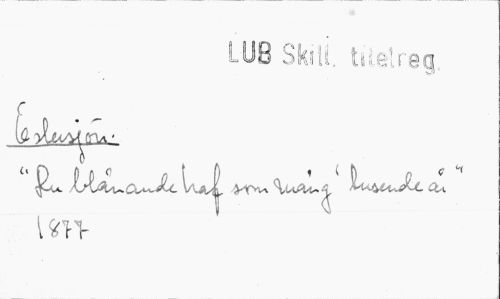 LUB Skill. titelreg.
Eslasjön.
"Du blånande haf som mång' tusende år"
1877